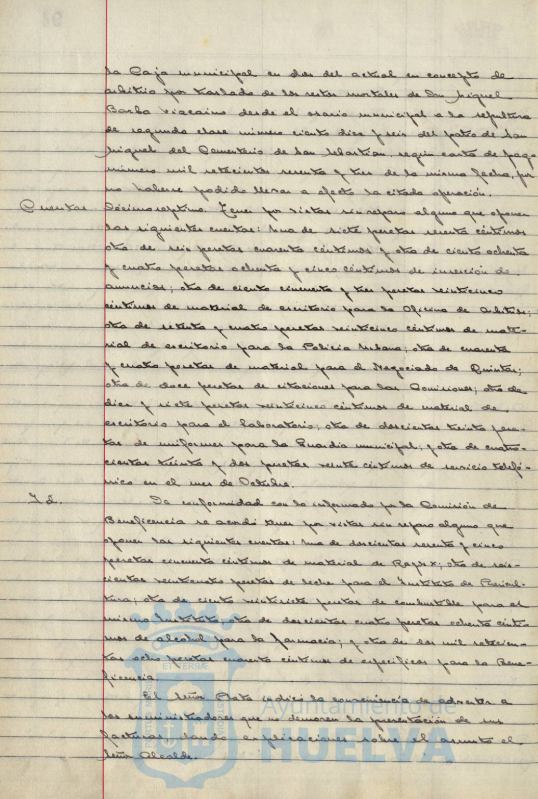 la Caja municipal en dos del actual en concepto de
arbitrio por traslado de los restos mortales de Don Miguel
Barba Vizcaino desde el osario municipal a la sepultura
de segunda clase número ciento diez y seis del patio de San
Miguel del Cementerio de San Sebastian, según carta de pago
número mil setecientos sesenta y tres de la misma fecha, por
no haberse podido llevar a efecto la citada operación.
Cuentas Décimoseptimo. Tener por vistas sin reparo alguno que oponer
las siguientes cuentas: Una de siete pesetas sesenta céntimos
otra de seis pesetas cuarenta céntimos y otra de ciento ochenta
y cuatro pesetas ochenta y cinco céntimos de inserción de
anuncios; otra de ciento cincuenta y tres pesetas veinticinco
céntimos de material de escritorio para la Oficina de Arbitrios;
otra de setenta y cuatro pesetas veinticinco céntimos de mate-
rial de escritorio para la Policia Urbana; otra de cuarenta
y cuatro pesetas de material para el Negociado de Quintas;
otra de doce pesetas de citaciones para las Comisiones; otra de
diez y siete pesetas veinticinco céntimos de material de
escritorio para el Laboratorio; otra de doscientas treinta pese-
tas de uniformes para la Guardia municipal, y otra de cuatro-
cientas treinta y dos pesetas veinte céntimos de servicio telefó-
nico en el mes de Octubre.
Id. De conformidad con lo informado por la Comisión de
Beneficencia se acordó tener por vistas sin reparo alguno que
oponer las siguientes cuentas: Una de doscientas sesenta y cinco
pesetas cincuenta céntimos de material de Rayos X; otra de seis-
cientas veinticuatro pesetas de leche para el Instituto de Puericul-
tura; otra de ciento veintisiete pesetas de combustible para el
mismo Instituto; otra de doscientas cuatro pesetas ochenta cénti-
mos de alcohol para la farmacia; y otra de dos mil setecien-
tas ocho pesetas cuarenta céntimos de especificos para la Bene-
ficencia.
El Señor Plata indicó la conveniencia de advertir a
los suministradores que no demoren la presentación de sus
facturas, dando explicaciones sobre el asunto el
Señor Alcalde.
Ayuntamiento de
HUELVA